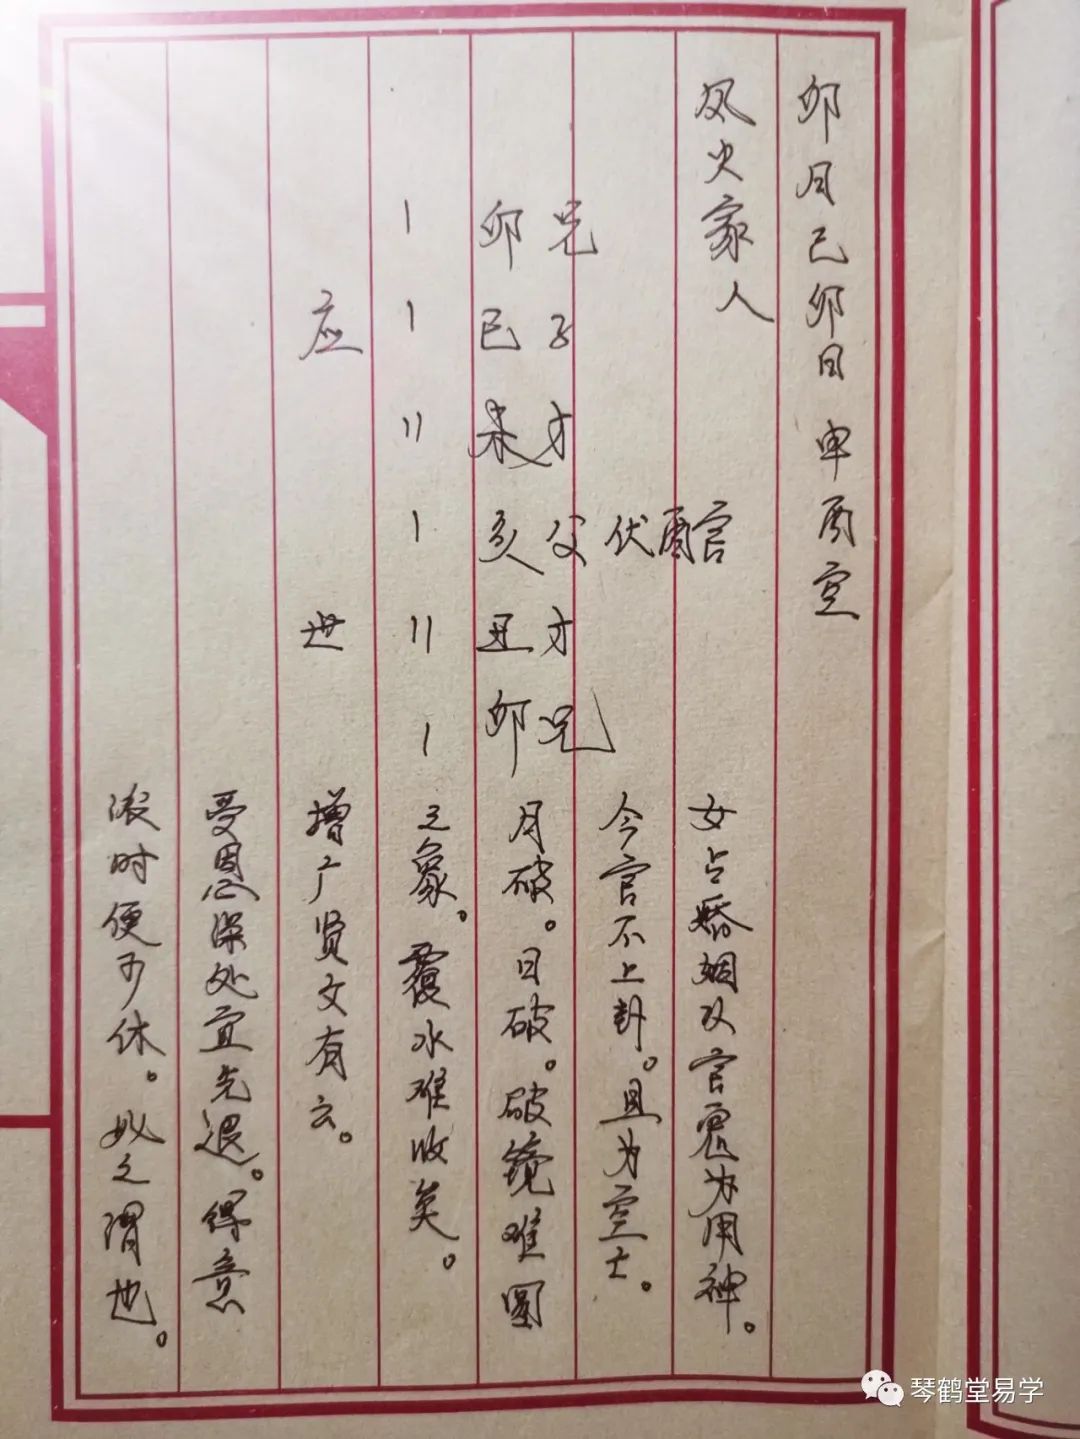 卯月己卯日 申酉空
风火家人
丨 卯兄
应 丨 巳子
〢 未才
丨 亥父 伏酉官
世 〢 丑才
丨 卯兄
女占婚姻以官鬼为用神。
今官不上卦。且为空亡。
月破。日破。破镜难圆
之象。覆水难收矣。
增广贤文有云。
受恩深处宜先退。得意
浓时便可休。此之谓也。
琴鹤堂易学